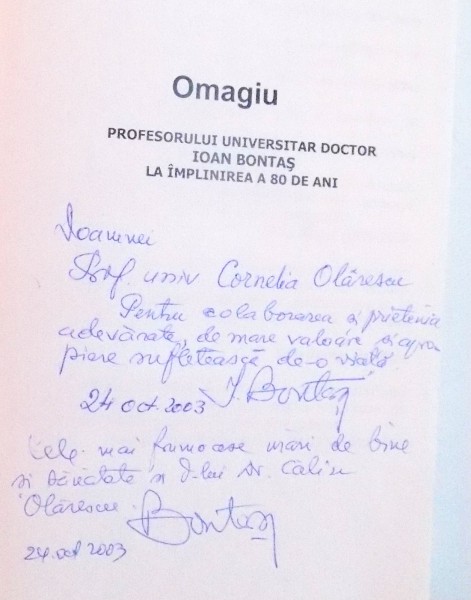 Omagiu
PROFESORULUI UNIVERSITAR DOCTOR
IOAN BONTAȘ
LA ÎMPLINIREA A 80 DE ANI
Doamnei
Prof. univ Cornelia Olărescu
Pentru colaborarea și prietenia
adevărate, de mare valoare și apro
piere sufletească de-o viață
24 oct. 2003 I. Bontaș
Cele mai frumoase urări de bine
și sănătate și d-lui Dr. Călin
Olărescu. Bontaș
24.oct 2003